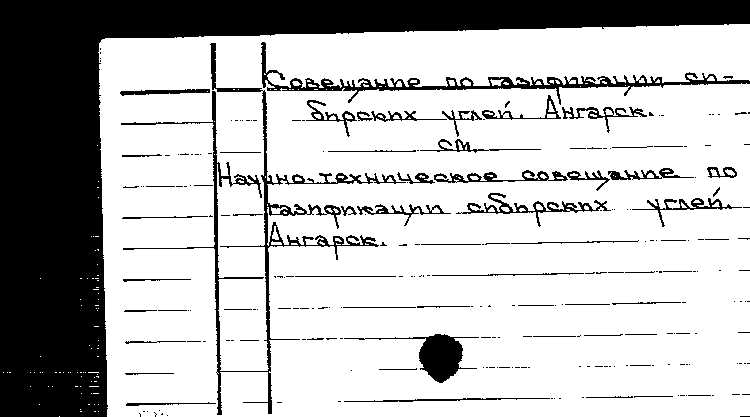 Совещание по газификации си-
бирских углей. Ангарск.
см.
Научно-техническое совещание по
газификации сибирских углей.
Ангарск.